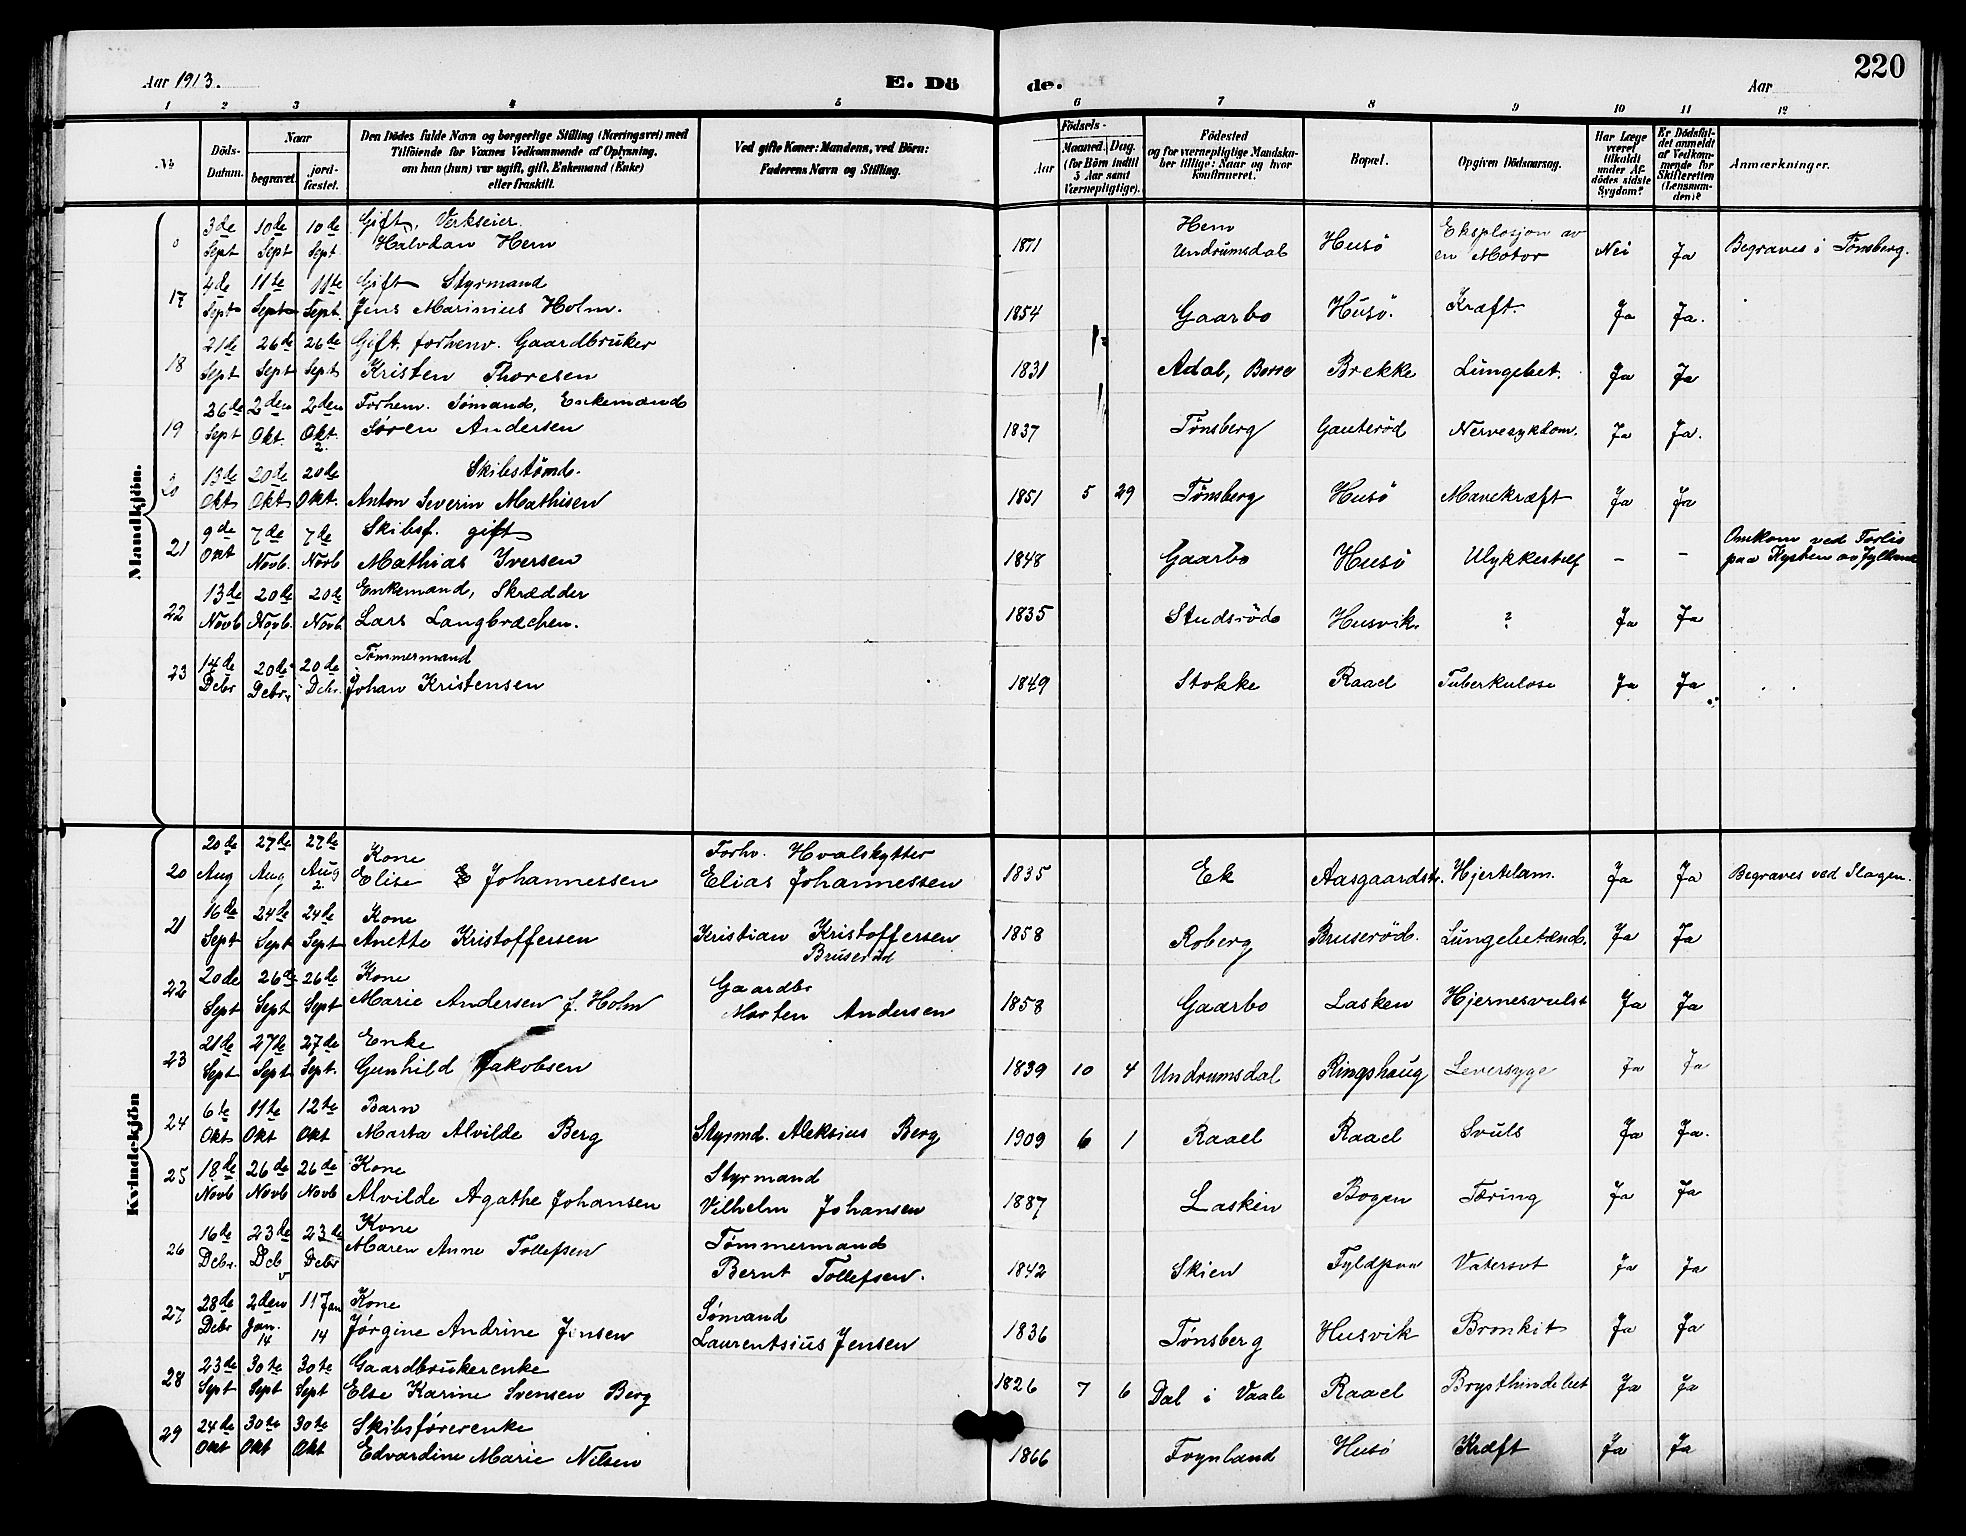 Aar 1913.
E. Dö
de.
Aar
220
1 2 3 4 5 6 7 8 9 10 11 12
No
Döds-
Datum.
Naar
begravet.
jord-
fæstet.
Den Dödes fulde Navn og borgerlige Stilling (Næringsvei) med
Tilföiende for Voxnes Vedkommende af Oplysning,
om han (hun) var ugift, gift, Enkemand (Enke)
eller fraskilt.
Ved gifte Koner: Mandens, ved Börn:
Faderens Navn og Stilling.
Födsels-
Aar
Maaned. Dag.
(for Börn indtil
5 Aar samt
Værnepligtige).
Födested
og for værnepligtige Mandska-
ber tillige: Naar og hvor
konfirmeret.
Bopæl.
Opgiven Dödsaarsag.
Har Læge
været
tilkaldt
under Af-
dödes sidste
Sygdom?
Er Dödsfal-
det anmeldt
af Vedkom-
mende for
Skifteretten
(Lensman-
den)?
Anmærkninger.
Mandkjön.
3de 10de 10de Gift, Verkseier. Hem Eksplosjon av
Sept Sept Sept. Halvdan Hem 1871 Undrumsdal Husö en Motor Nei Ja Begraves i Tønsberg.
4de 11te 11te Gift Styrmand
17 Sept Sept Sept. Jens Marinius Holm. 1854 Gaarbo Husö. Kræft. Ja Ja.
21de 26de 26de Gift, forhenv. Gaardbruker
18 Sept Sept Sept Kristen Thoresen 1831 Adal, Borre Brekke Lungebet. Ja Ja
26de 2den 2den Forhen. Sømand, Enkemand
19 Sept Okt. Okt. Søren Andersen 1837 Tønsberg Gauterød Nervesykdom. Ja Ja.
13de 20de 20de Skibstømd.
20 Okt Okt Okt. Anton Severin Mathisen 1851 5 29 Tønsberg Husö Mavekræft Ja Ja
9de 7de 7de Skibsf. gift Omkom ved Forlis
21 Okt Novb. Novb Mathias Iversen 1848 Gaarbo Husö Ulykkestilf — — paa Kysten av Jylland
13de 20de 20de Enkemand, Skrædder
22 Novb Novb. Novb. Lars Langbrachen. 1835 Studsrød Husvik. ? Ja Ja
14de 20de 20de Tømmermand
23 Debr Debr. Debr. Johan Kristensen 1849 Stokke Raael Tuberkulose Ja Ja
Kvindekjön
20de 27de 27de Kone Forhv. Hvalskytter
20 Aug Aug Aug Elise Johannessen Elias Johannessen 1835 Ek Aasgaardstr. Hjertelam. Ja Ja Begraves ved Slagen.
16de 24de 24de Kone
21 Sept Sept Sept Anette Kristoffersen Kristian Kristoffersen 1858 Roberg Bruserød. Lungebetænd. Ja Ja
Bruserød
20de 26de 26de Kone Gaardbr
22 Sept Sept Sept Marie Andersen f. Holm Morten Andersen 1858 Gaarbo Lasken Hjernesvulst Ja Ja
21de 27de 27de Enke
23 Sept Sept Sept. Gunhild Jakobsen 1839 10 4 Undrumsdal Ringshaug Leversyge Ja Ja
6te 11te 12te Barn
24 Okt Okt Okt Marta Alvilde Berg Styrmd. Aleksius Berg 1909 6 1 Raael Raael Svuls Ja Ja.
18de 26de 26de Kone Styrmand
25 Novb Novb Novb Alvilde Agathe Johansen Vilhelm Johansen 1887 Lasken Bogen Tæring Ja Ja
16de 23de 23de Kone Tømmermand
26 Debr. Deb Debr Maren Anne Tollefsen Bernt Tollefsen. 1842 Skien Fyldpaa Vatersot Ja Ja
28de 2den 11 Jan Kone Sømand
27 Debr Jan. 14 14 Jørgine Andrine Jensen Laurentsius Jensen 1836 Tønsberg Husvik Bronkit Ja Ja
23de 30te 30te Gaardbrukerenke
28 Sept Sept Sept Else Karine Svensen Berg 1826 7 6 Dal i Vaale Raael Brysthindebet Ja Ja
24de 30te 30te Skibsførerenke
29 Okt Okt Okt Edvardine Marie Nilsen 1866 Føynland Husö Kræft Ja Ja